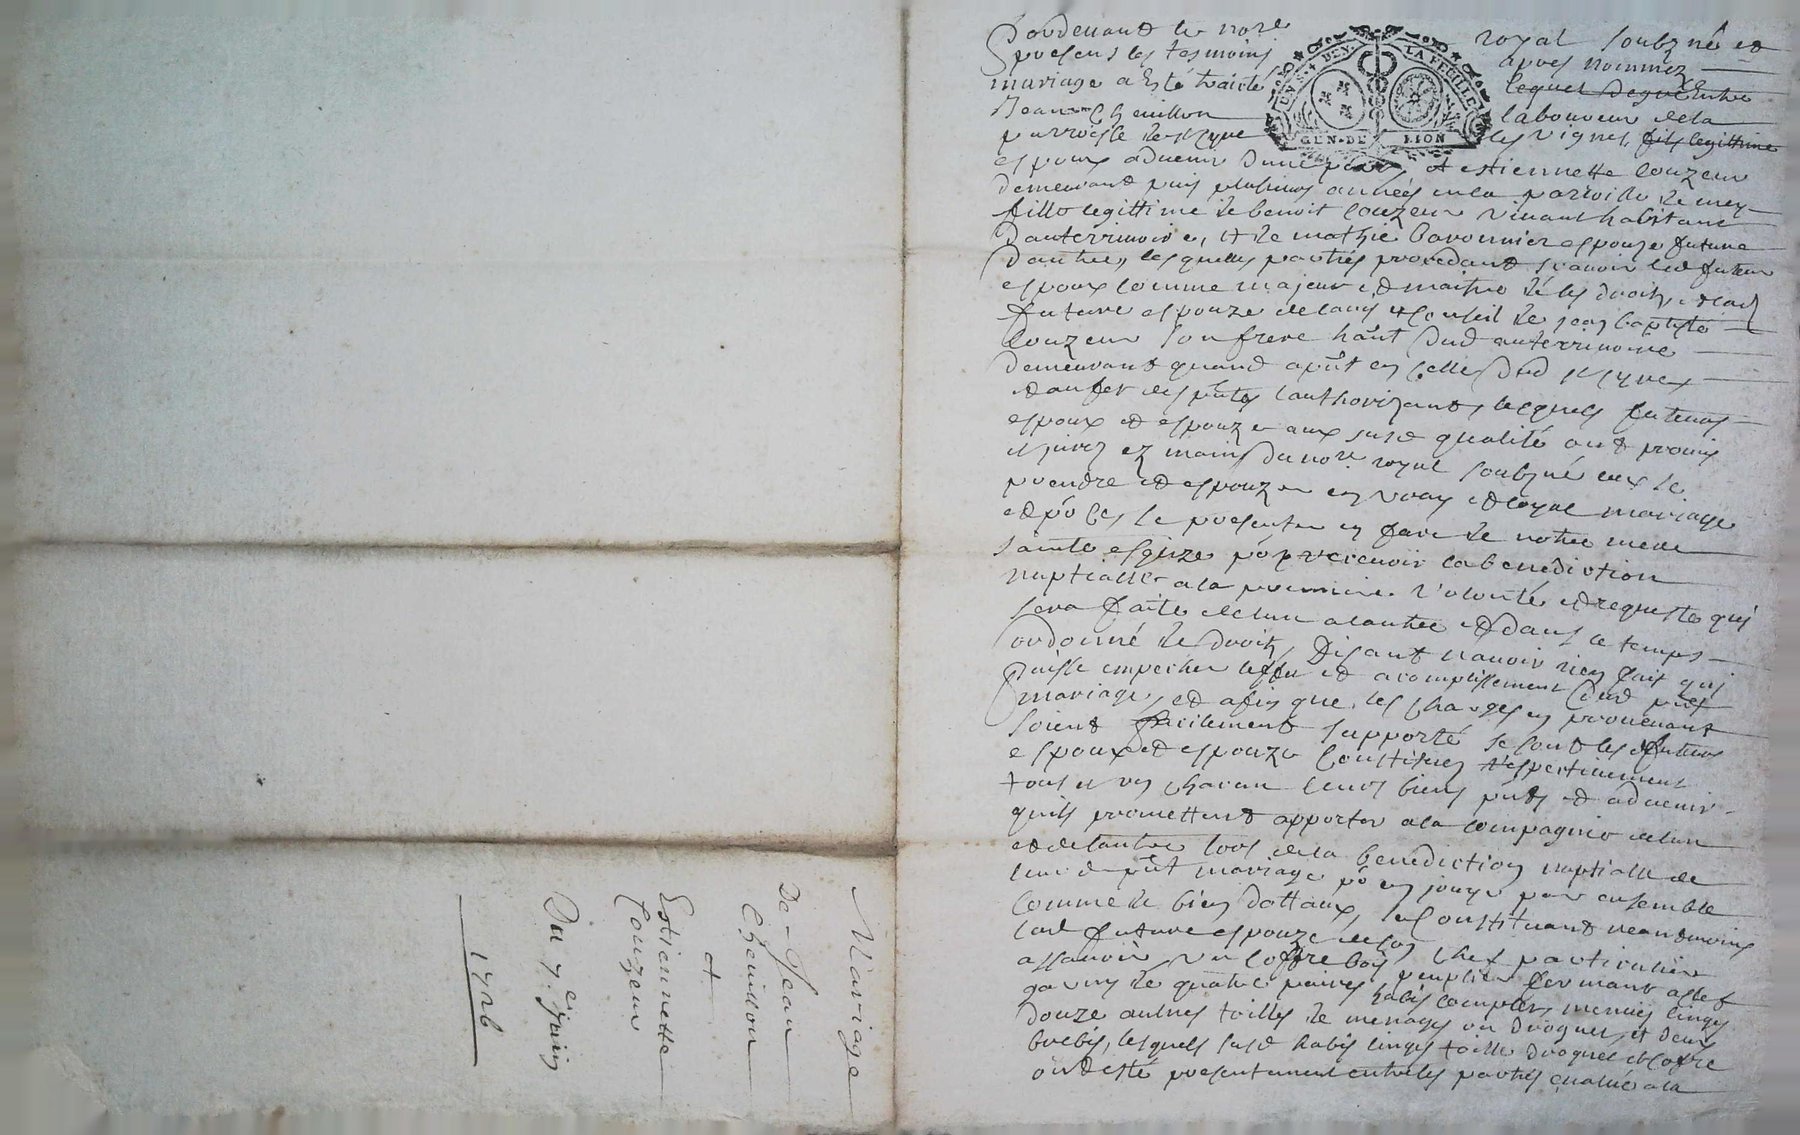 Mariage
De Jean
Cheuillon
et
Estiennette
Couzeur
Du 7e. Juin
1726
Pardeuant le nore royal soubzné et
presens les tesmoins apres nommez
mariage a Esté traicté lequel Entre
Jean Cheuillon laboureur de la
parroisse de vignes, fils legittime
espoux aduenir d'une part, et estiennette Couzeur
demeurant puis plusieurs années en la parroisse de
fille legittime de benoit Couzeur viuant habitant
d'auterrinoire, et de mathie baronnier espouze future
d'autre, lesquelles parties procedant sçauoir led futeur
espoux comme majeur et maitre de ses droits, et lad
future espouze de lauis et Conseil de jean baptiste
Couzeur son frere hant dud auterrinoire
demeurant quand a pnt en celle dud
lauthorizant, lesquels futeurs
espoux et espouze aux susd qualité ont promis
et jurez ez mains du nore. royal soubzné eux se
prendre et espouzer en vray et loyal mariage
et po ce se presenter en face de notre mere
sainte esglize po y receuoir la benediction
nuptialle a la premiere volonté et requeste qui
sera faite de lun a lautre et dans le temps
ordonné de droit, Disant nauoir rien fait qui
puisse empecher leffet et acomplissement dud pnt
mariage, et afin que les charges en prouenant
soient facilement supporté se sont lesd futeurs
espoux et espouze Constituez respectiuement
tous et vn chacun leurs biens pnts et aduenir
quils promettent apporter a la compagnie de lun
et de lautre lors de la benediction nuptialle de
leur d pnt mariage po en jouyr par ensemble
comme de bien dottaux, se Constituant neandmoins
lad future espouze de son chef particulier
assauoir vn coffre bois peuplier fermant a clef
garny de quatre paires habis complets, menues linges
douze aulnes toilles de menages ou droguet, et deux
brebis, lesquels susd habis linges toille droguet et cofre
ont esté presentement entre les parties eualué a la